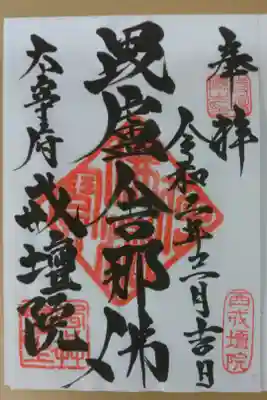 奉拝
令和三年三月吉日
毘盧舎那佛
太宰府
戒壇院
西戒壇院